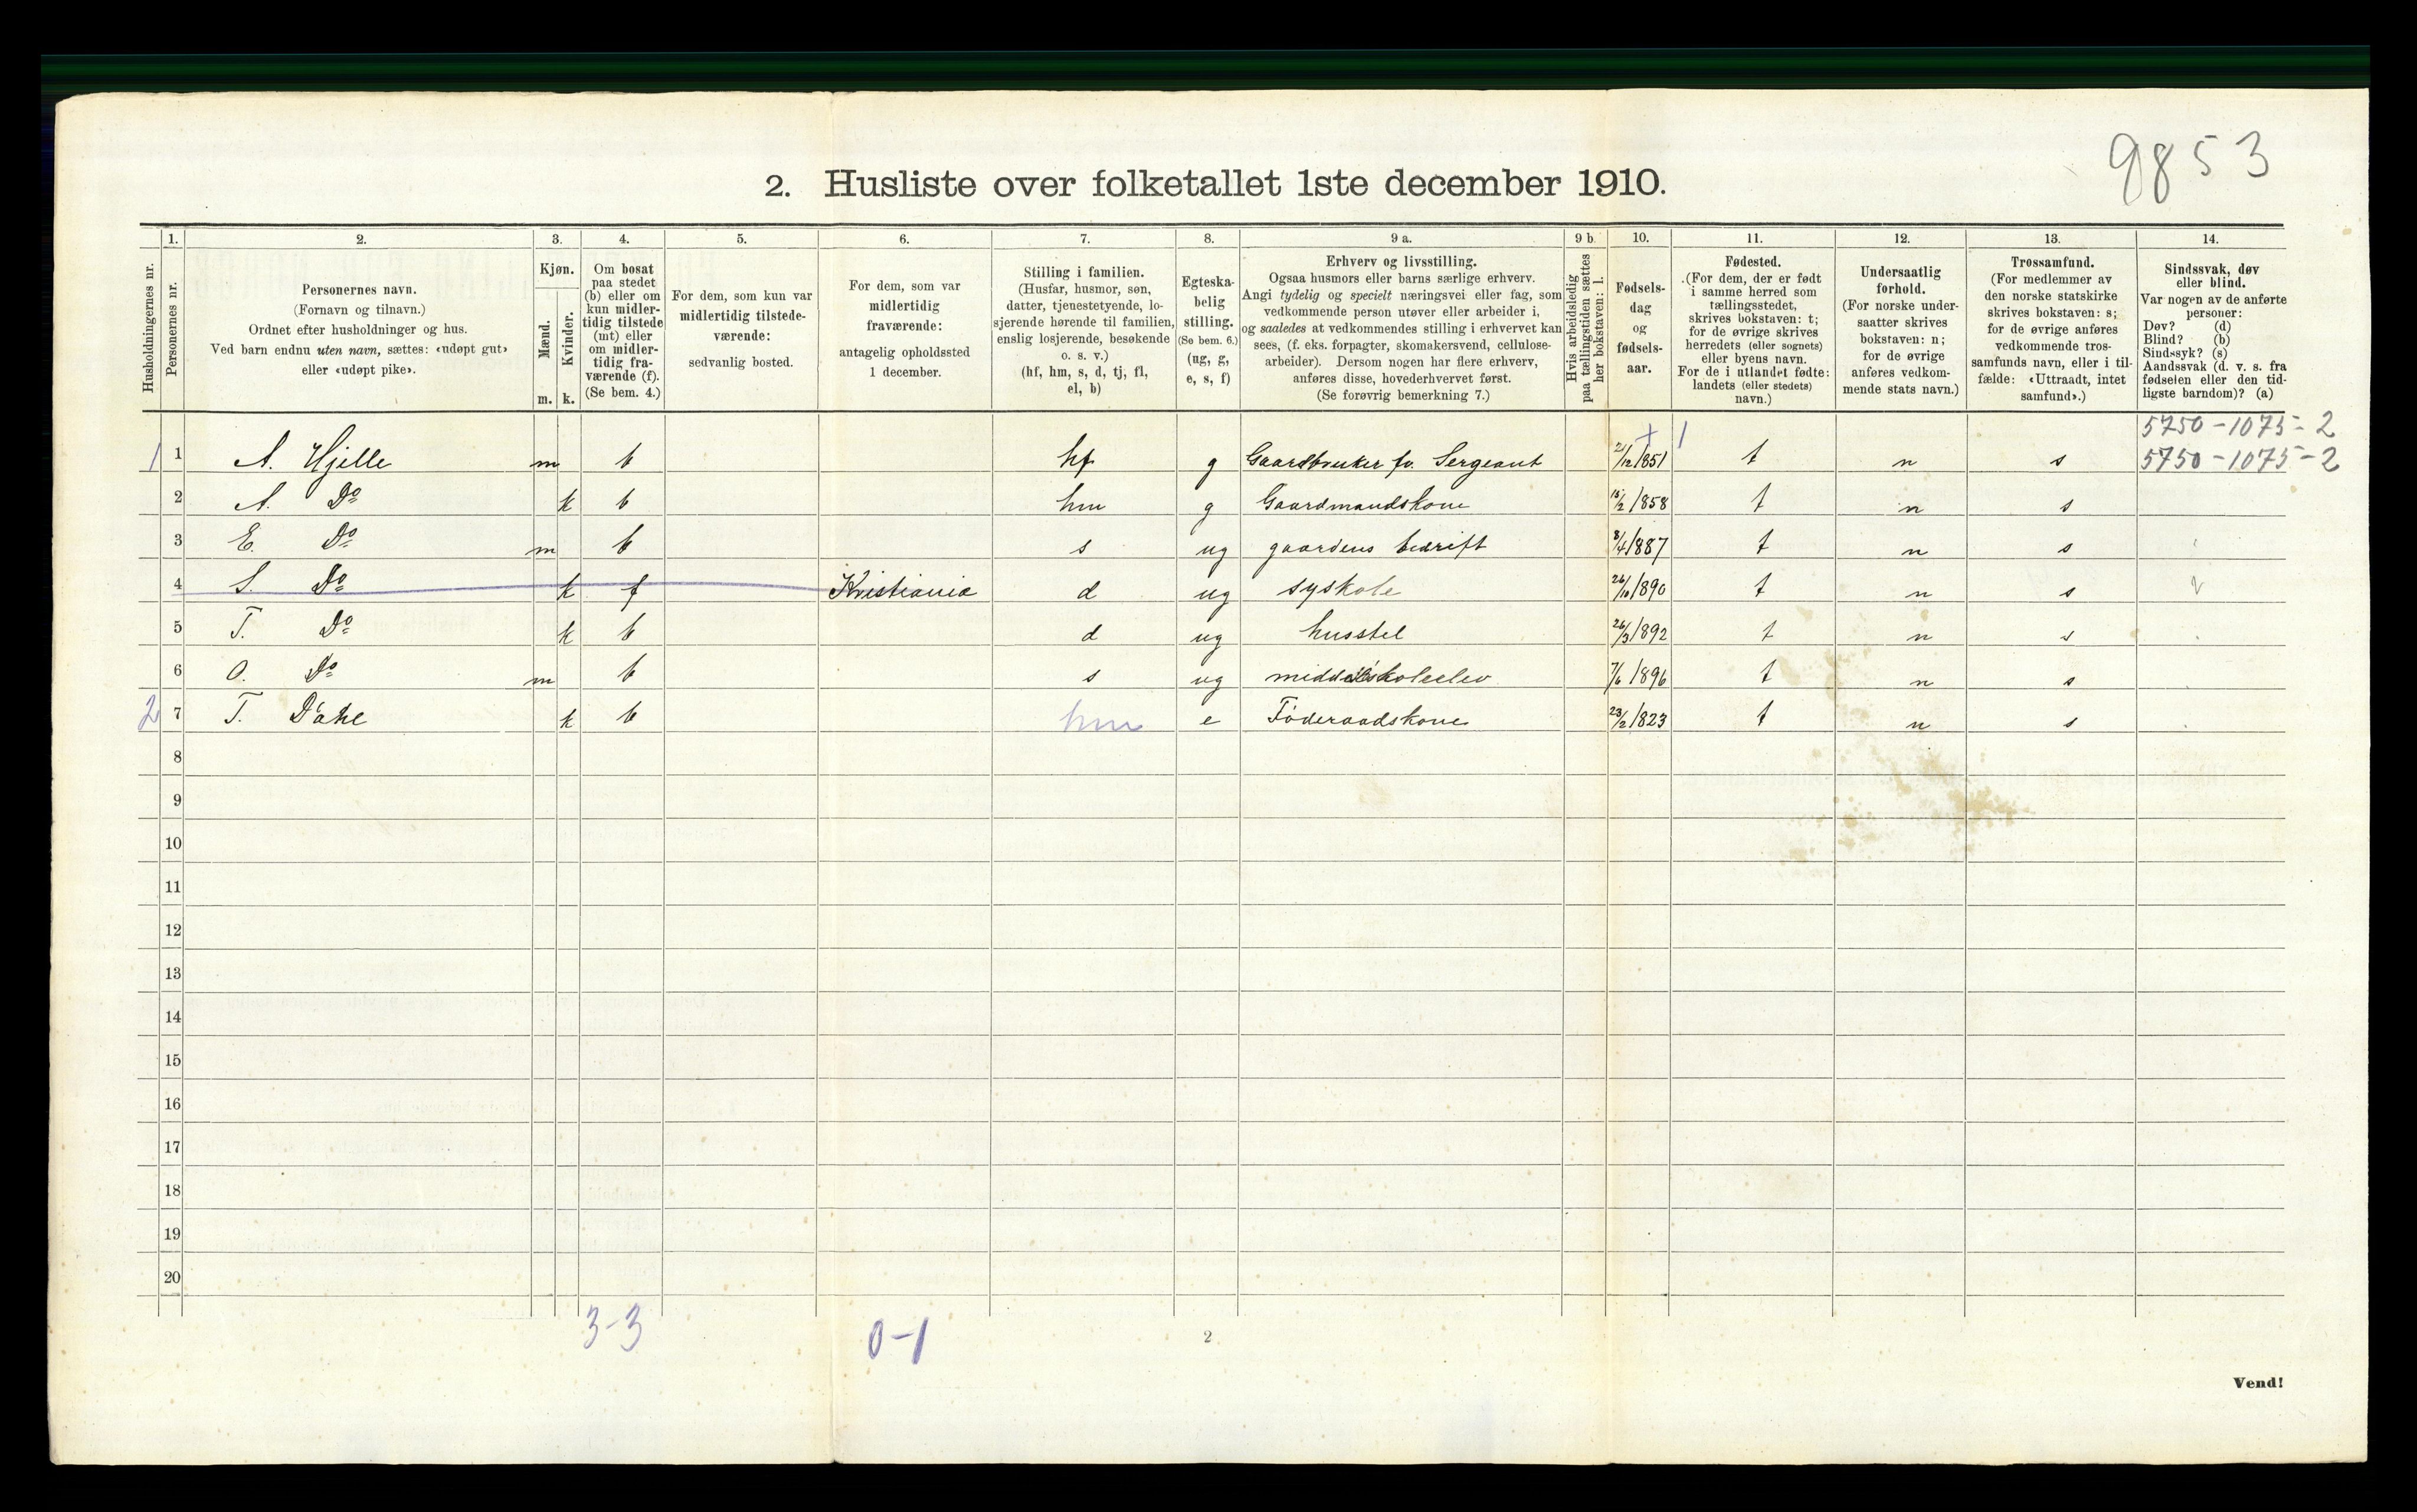 9853
2. Husliste over folketallet 1ste december 1910.
Husholdningernes nr.
1. 2. 3. 4. 5. 6. 7. 8. 9 a. 9 b. 10. 11. 12. 13. 14.
Personernes nr.
Personernes navn.
(Fornavn og tilnavn.)
Ordnet efter husholdninger og hus.
Ved barn endnu uten navn, sættes: «udøpt gut»
eller «udøpt pike».
Kjøn.
Mænd.
Kvinder.
m. k.
Om bosat
paa stedet
(b) eller om
kun midler-
tidig tilstede
(mt) eller
om midler-
tidig fra-
værende (f).
(Se bem. 4.)
For dem, som kun var
midlertidig tilstede-
værende:
sedvanlig bosted.
For dem, som var
midlertidig
fraværende:
antagelig opholdssted
1 december.
Stilling i familien.
(Husfar, husmor, søn,
datter, tjenestetyende, lo-
sjerende hørende til familien,
enslig losjerende, besøkende
o. s. v.)
(hf, hm, s, d, tj, fl,
el, b)
Egteska-
belig
stilling.
(Se bem. 6.)
(ug, g,
e, s, f)
Erhverv og livsstilling.
Ogsaa husmors eller barns særlige erhverv.
Angi tydelig og specielt næringsvei eller fag, som
vedkommende person utøver eller arbeider i,
og saaledes at vedkommendes stilling i erhvervet kan
sees, (f. eks. forpagter, skomakersvend, cellulose-
arbeider). Dersom nogen har flere erhverv,
anføres disse, hovederhvervet først.
(Se forøvrig bemerkning 7.)
Hvis arbeidsledig
paa tællingstiden sættes
her bokstaven: l.
Fødsels-
dag
og
fødsels-
aar.
Fødested.
(For dem, der er født
i samme herred som
tællingsstedet,
skrives bokstaven: t;
for de øvrige skrives
herredets (eller sognets)
eller byens navn.
For de i utlandet fødte:
landets (eller stedets)
navn.)
Undersaatlig
forhold.
(For norske under-
saatter skrives
bokstaven: n;
for de øvrige
anføres vedkom-
mende stats navn.)
Trossamfund.
(For medlemmer av
den norske statskirke
skrives bokstaven: s;
for de øvrige anføres
vedkommende tros-
samfunds navn, eller i til-
fælde: «Uttraadt, intet
samfund».)
Sindssvak, døv
eller blind.
Var nogen av de anførte
personer:
Døv? (d)
Blind? (b)
Sindssyk? (s)
Aandssvak (d. v. s. fra
fødselen eller den tid-
ligste barndom)? (a)
5750-1075-2
+ 1
1 1 A. Hjelle m b hf g Gaardbruker fv. Sergeant 21/12 1851 t n s 5750-1075-2
2 A. Do k b hm g Gaardmandskone 15/2 1858 t n s
3 E. Do m b s ug gaardens bedrift 8/4 1887 t n s
4 S. Do k f Kristiania d ug syskole 26/10 1890 t n s
5 T. Do k b d ug husstel 26/3 1892 t n s
6 O. Do m b s ug middelskoleelev 7/6 1896 t n s
2 7 T. Dahl k b hm e Føderaadskone 23/2 1823 t n s
8
9
10
11
12
13
14
15
16
17
18
19
20
3-3 0-1
2
Vend!